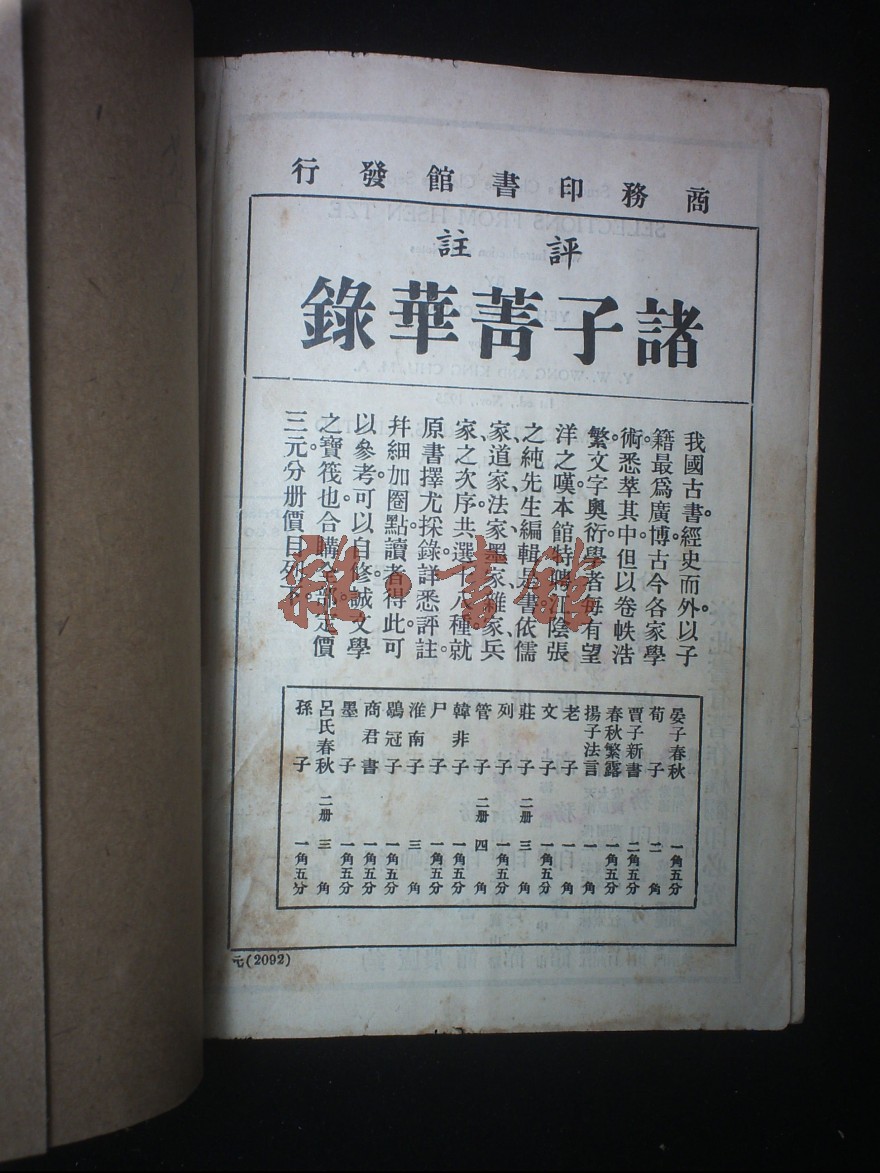 商務印書館發行
評註
諸子菁華錄
我國古書經史而外。以子
籍最爲廣博。古今各家學
術。悉萃其中。但以卷帙浩
繁。文字奧衍。學者每有望
洋之嘆。本館特聘江陰張
之純先生編輯是書。依儒
家、道家、法家、墨家、雜家、兵
家之次序。共選十八種。就
原書擇尤採錄。詳悉評註。
幷細加圈點。讀者得此。可
以參考。可以自修。誠文學
之寶筏也。合購全部。定價
三元。分册價目列下。
晏子春秋 一角五分
荀子 二角
賈子新書 二角五分
春秋繁露 一角五分
揚子法言 一角
老子 一角
文子 一角五分
莊子 二册 三角
列子 一角五分
管子 二册 四角
韓非子 一角五分
尸子 一角五分
淮南子 三角
鶡冠子 一角五分
商君書 一角五分
墨子 一角五分
呂氏春秋 二册 三角
孫子 一角五分
元(2092)
雜·書館